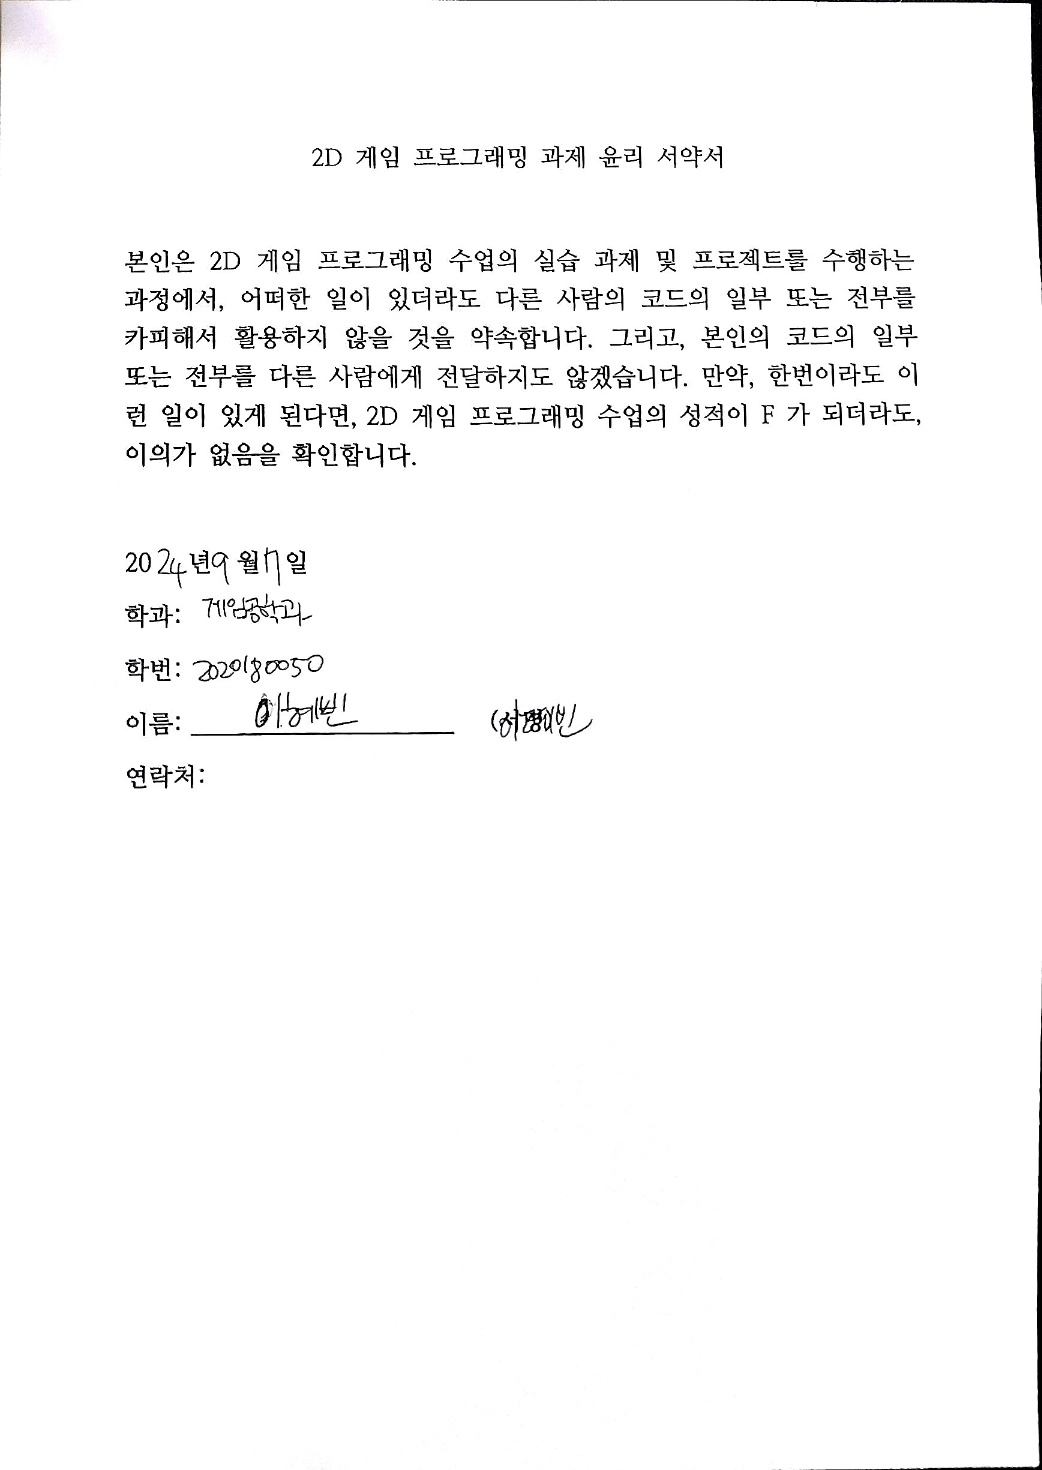 2D 게임 프로그래밍 과제 윤리 서약서
본인은 2D 게임 프로그래밍 수업의 실습 과제 및 프로젝트를 수행하는
과정에서, 어떠한 일이 있더라도 다른 사람의 코드의 일부 또는 전부를
카피해서 활용하지 않을 것을 약속합니다. 그리고, 본인의 코드의 일부
또는 전부를 다른 사람에게 전달하지도 않겠습니다. 만약, 한번이라도 이
런 일이 있게 된다면, 2D 게임 프로그래밍 수업의 성적이 F 가 되더라도,
이의가 없음을 확인합니다.
2024년 9월 17일
학과: 게임공학과
학번: 2020180050
이름: 이혜빈
연락처: